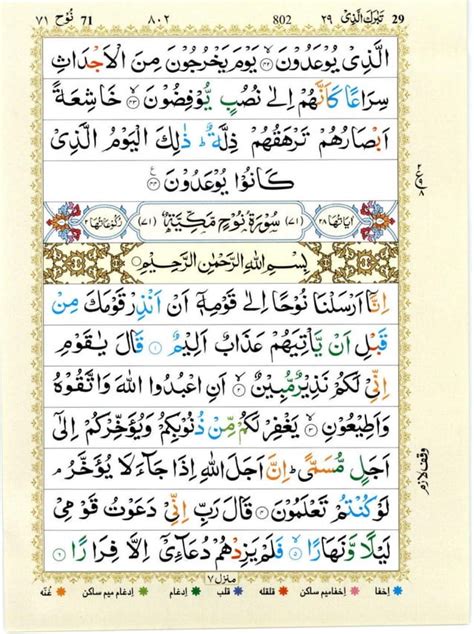 29 تَبٰرَكَ الَّذِىْ ٢٩ 802 ٨٠٢ 71 نُوْح ٧١
الَّذِىْ يُوْعَدُوْنَ ۙ ٤٢ يَوْمَ يَخْرُجُوْنَ مِنَ الْاَجْدَاثِ
سِرَاعًا كَاَنَّهُمْ اِلٰى نُصُبٍ يُّوْفِضُوْنَ ۙ ٤٣ خَاشِعَةً
اَبْصَارُهُمْ تَرْهَقُهُمْ ذِلَّةٌ ؕ ذٰلِكَ الْيَوْمُ الَّذِىْ
كَانُوْا يُوْعَدُوْنَ ٤٤
اٰيَاتُهَا ٢٨ (٧١) سُوْرَةُ نُوْحٍ مَّكِّيَّةٌ (٧١) رُكُوْعَاتُهَا ٢
بِسْمِ اللهِ الرَّحْمٰنِ الرَّحِيْمِ
اِنَّاۤ اَرْسَلْنَا نُوْحًا اِلٰى قَوْمِهٖۤ اَنْ اَنْذِرْ قَوْمَكَ مِنْ
قَبْلِ اَنْ يَّاْتِيَهُمْ عَذَابٌ اَلِيْمٌ ١ قَالَ يٰقَوْمِ
اِنِّىْ لَكُمْ نَذِيْرٌ مُّبِيْنٌ ۙ ٢ اَنِ اعْبُدُوا اللهَ وَاتَّقُوْهُ
وَاَطِيْعُوْنِ ۙ ٣ يَغْفِرْ لَكُمْ مِّنْ ذُنُوْبِكُمْ وَيُؤَخِّرْكُمْ اِلٰٓى
اَجَلٍ مُّسَمًّى ؕ اِنَّ اَجَلَ اللهِ اِذَا جَآءَ لَا يُؤَخَّرُ ۘ
لَوْ كُنْتُمْ تَعْلَمُوْنَ ٤ قَالَ رَبِّ اِنِّىْ دَعَوْتُ قَوْمِىْ
لَيْلًا وَّنَهَارًا ۙ ٥ فَلَمْ يَزِدْهُمْ دُعَآءِىْۤ اِلَّا فِرَارًا ٦
وقف لازم
منزل ٧
اِخفا اِخفا میم ساکن قلقله قلب اِدغام اِدغام میم ساکن غُنّه